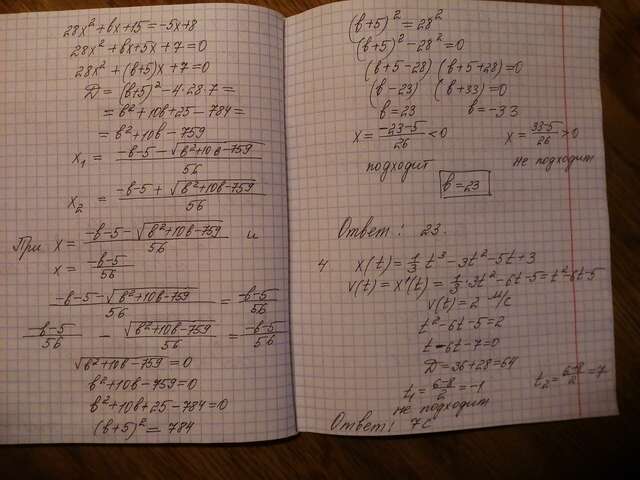 28x² + bx + 15 = -5x + 8
28x² + bx + 5x + 7 = 0
28x² + (b+5)x + 7 = 0
D = (b+5)² - 4·28·7 =
= b² + 10b + 25 - 784 =
= b² + 10b - 759
x₁ = (-b-5-√(b²+10b-759))/56
x₂ = (-b-5+√(b²+10b-759))/56
При x = (-b-5-√(b²+10b-759))/56 и
x = (-b-5)/56
(-b-5-√(b²+10b-759))/56 = (-b-5)/56
(-b-5)/56 - √(b²+10b-759)/56 = (-b-5)/56
√(b²+10b-759) = 0
b² + 10b - 759 = 0
b² + 10b + 25 - 784 = 0
(b+5)² = 784
(b+5)² = 28²
(b+5)² - 28² = 0
(b+5-28) (b+5+28) = 0
(b-23) (b+33) = 0
b = 23 b = -33
x = (-23-5)/26 < 0 x = (33-5)/26 > 0
подходит не подходит
b = 23
Ответ: 23.
4 x(t) = 1/3 t³ - 3t² - 5t + 3
v(t) = x'(t) = 1/3·3t² - 6t - 5 = t² - 6t - 5
v(t) = 2 м/с
t² - 6t - 5 = 2
t - 6t - 7 = 0
D = 36 + 28 = 64
t₁ = (6-8)/2 = -1 t₂ = (6+8)/2 = 7
не подходит
Ответ: 7с